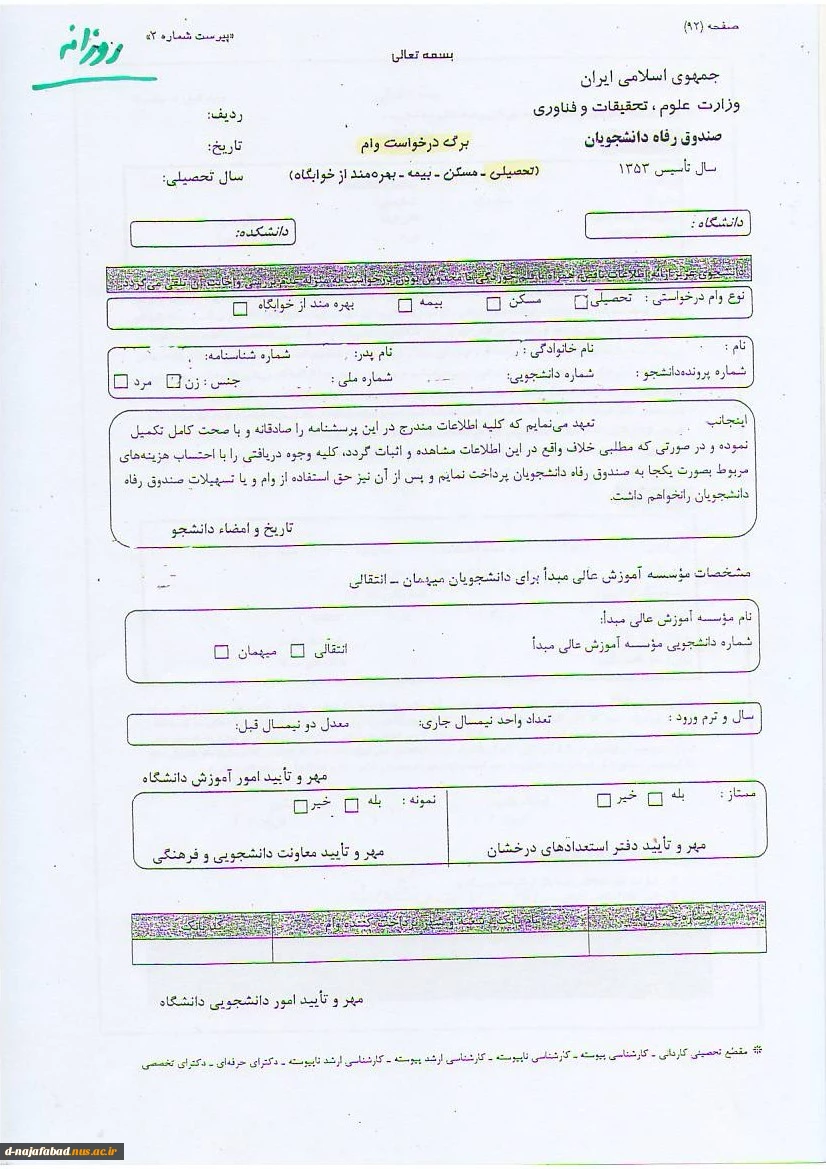 صفحه (۹۲)
«پیوست شماره ۲»
روزانه
بسمه تعالی
جمهوی اسلامی ایران
وزارت علوم ، تحقیقات و فناوری
ردیف:
صندوق رفاه دانشجویان
برگ درخواست وام
تاریخ:
سال تأسیس ۱۳۵۳
(تحصیلی ـ مسکن ـ بیمه ـ بهره‌مند از خوابگاه)
سال تحصیلی:
دانشگاه :
دانشکده:
نوع وام درخواستی : تحصیلی مسکن بیمه بهره مند از خوابگاه
نام : نام خانوادگی : نام پدر: شماره شناسنامه:
شماره پرونده‌دانشجو : شماره دانشجویی: شماره ملی : جنس : زن مرد
اینجانب تعهد می‌نمایم که کلیه اطلاعات مندرج در این پرسشنامه را صادقانه و با صحت کامل تکمیل
نموده و در صورتی که مطلبی خلاف واقع در این اطلاعات مشاهده و اثبات گردد، کلیه وجوه دریافتی را با احتساب هزینه‌های
مربوط بصورت یکجا به صندوق رفاه دانشجویان پرداخت نمایم و پس از آن نیز حق استفاده از وام و یا تسهیلات صندوق رفاه
دانشجویان رانخواهم داشت.
تاریخ و امضاء دانشجو
مشخصات مؤسسه آموزش عالی مبدأ برای دانشجویان میهمان ـ انتقالی
نام مؤسسه آموزش عالی مبدأ:
شماره دانشجویی مؤسسه آموزش عالی مبدأ انتقالی میهمان
سال و ترم ورود : تعداد واحد نیمسال جاری: معدل دو نیمسال قبل:
مهر و تأیید امور آموزش دانشگاه
ممتاز : بله خیر
نمونه : بله خیر
مهر و تأیید دفتر استعدادهای درخشان
مهر و تأیید معاونت دانشجویی و فرهنگی
شماره حساب
کد بانک
مهر و تأیید امور دانشجویی دانشگاه
* مقطع تحصیلی کاردانی ـ کارشناسی پیوسته ـ کارشناسی ناپیوسته ـ کارشناسی ارشد پیوسته ـ کارشناسی ارشد ناپیوسته ـ دکترای حرفه‌ای ـ دکترای تخصصی
d-najafabad.nus.ac.ir